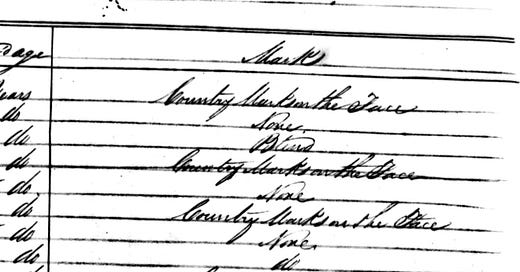 age Mark
Years Country Marks on the Face
do None
do Blind
do Country Marks on the Face
do None
do Country Marks on the Face
do None
do do